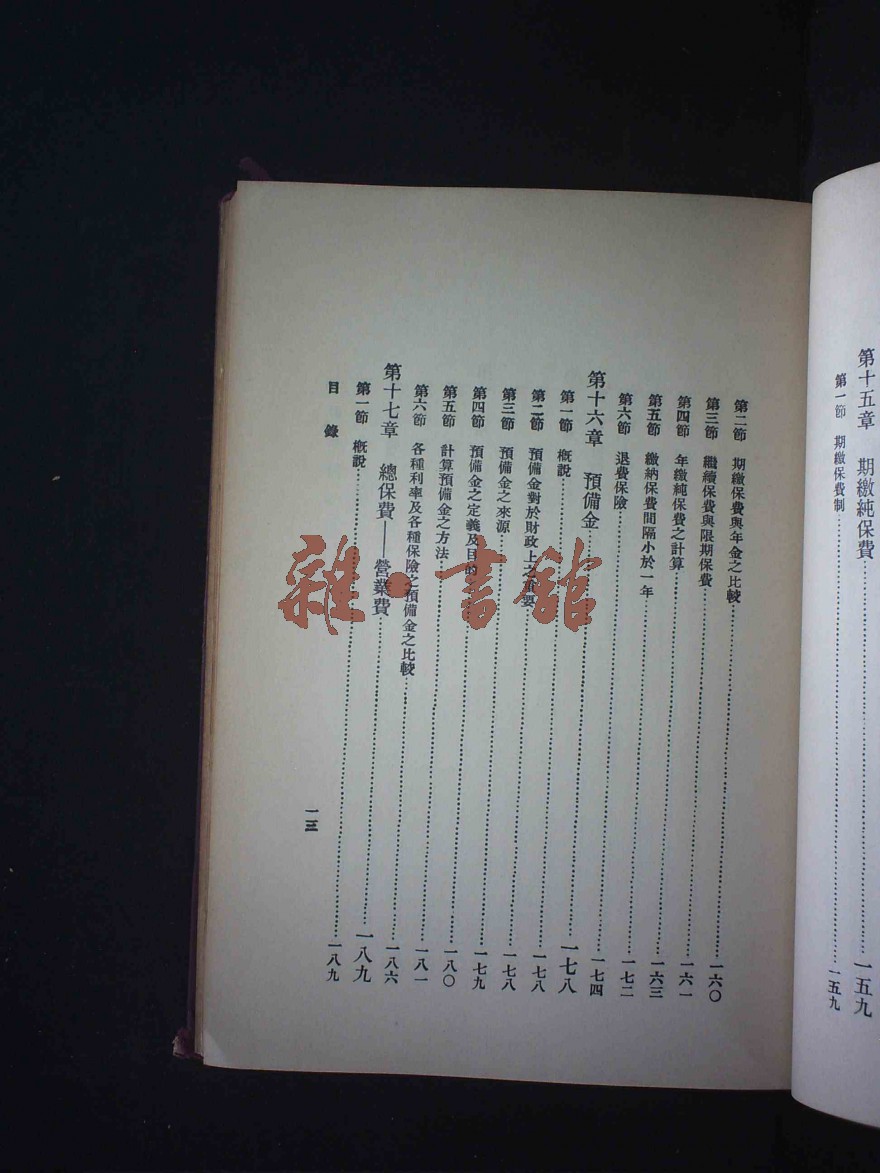 第十五章 期繳純保費……一五九
第一節 期繳保費制……一五九
第二節 期繳保費與年金之比較……一六〇
第三節 繼續保費與限期保費……一六一
第四節 年繳純保費之計算……一六三
第五節 繳納保費間隔小於一年……一七二
第六節 退費保險……一七四
第十六章 預備金……一七八
第一節 概說……一七八
第二節 預備金對於財政上之重要……一七八
第三節 預備金之來源……一七九
第四節 預備金之定義及目的……一八〇
第五節 計算預備金之方法……一八一
第六節 各種利率及各種保險之預備金之比較……一八六
第十七章 總保費——營業費……一八九
第一節 概說……一八九
目錄
一三
雜·書館